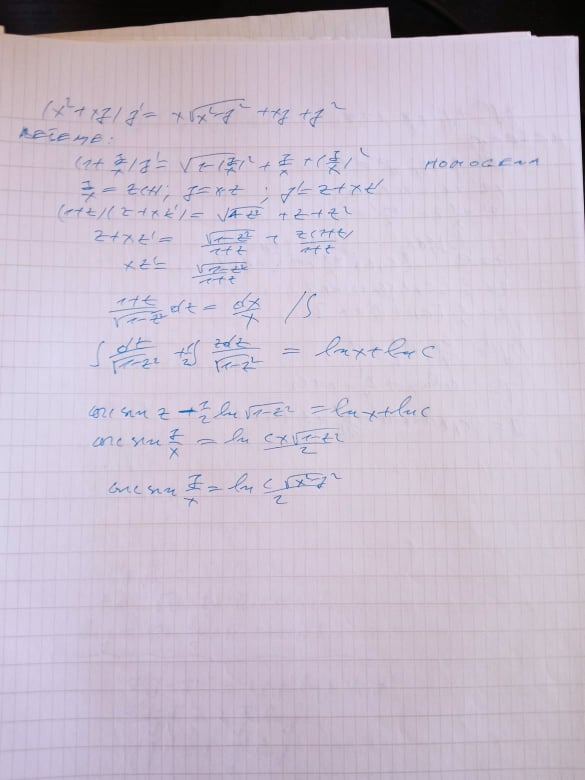 (x²+xy)y' = x√(x²-y²) + xy + y²
(1+y/x)y' = √(1-(y/x)²) + y/x + (y/x)² HOMOGENA
y/x = z(x); y=xz; y'=z+xz'
(1+z)(z+xz') = √(1-z²) + z + z²
z+xz' = √(1-z²)/(1+z) + z(1+z)/(1+z)
xz' = √(1-z²)/(1+z)
(1+z)/√(1-z²) dz = dx/x /∫
∫ dz/√(1-z²) ∫ zdz/√(1-z²) = ln x + ln c
arc sin z 1/2 ln √(1-z²) = ln x + ln c
arc sin y/x = ln cx√(1-z²)/2
arc sin y/x = ln c√(x²-y²)/2